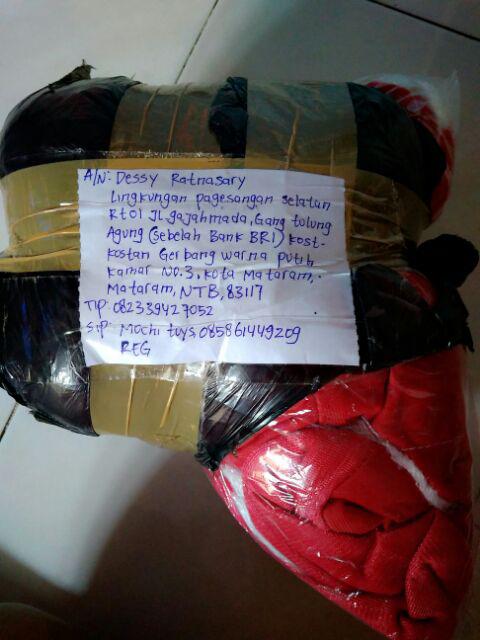 A/N: Dessy Ratnasary
Lingkungan pagesangan selatan
Rt01 Jl.gajahmada, Gang tulung
Agung (sebelah Bank BRI) kost-
kostan Gerbang warna putih
kamar No.3, kota Mataram,
Mataram, NTB, 83117
Tlp: 082339427052
S.P: Mochi tuys 085861449209
REG